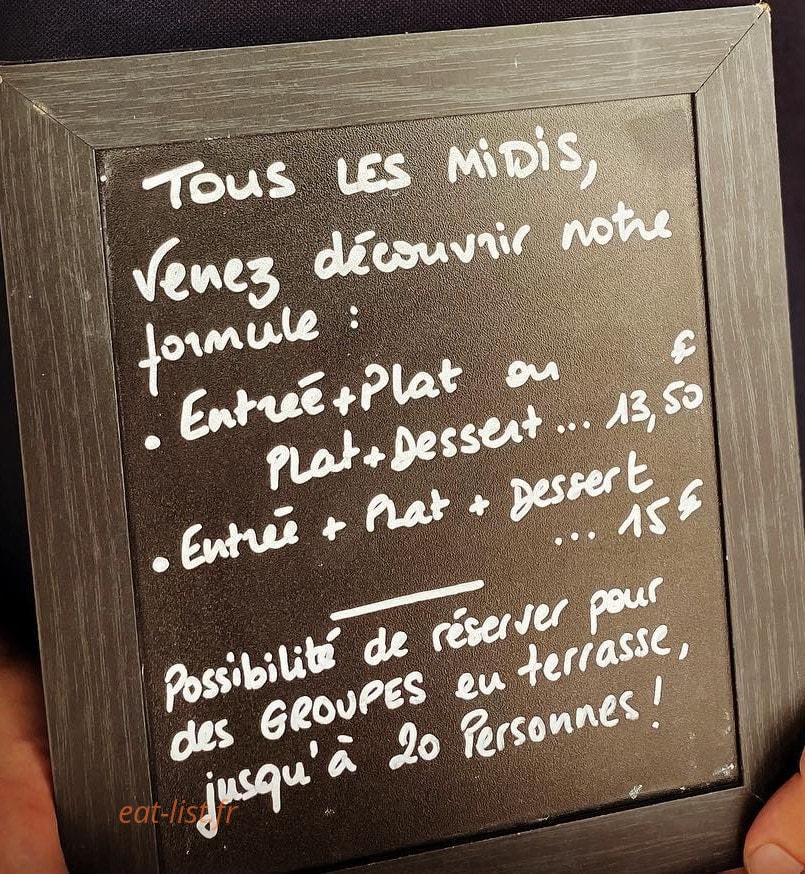 TOUS LES MiDiS,
Venez découvrir notre
formule :
• Entrée+Plat ou €
Plat+Dessert ... 13,50
• Entrée + Plat + Dessert
... 15 €
Possibilité de réserver pour
des GROUPES en terrasse,
jusqu'à 20 Personnes !
eat-list.fr